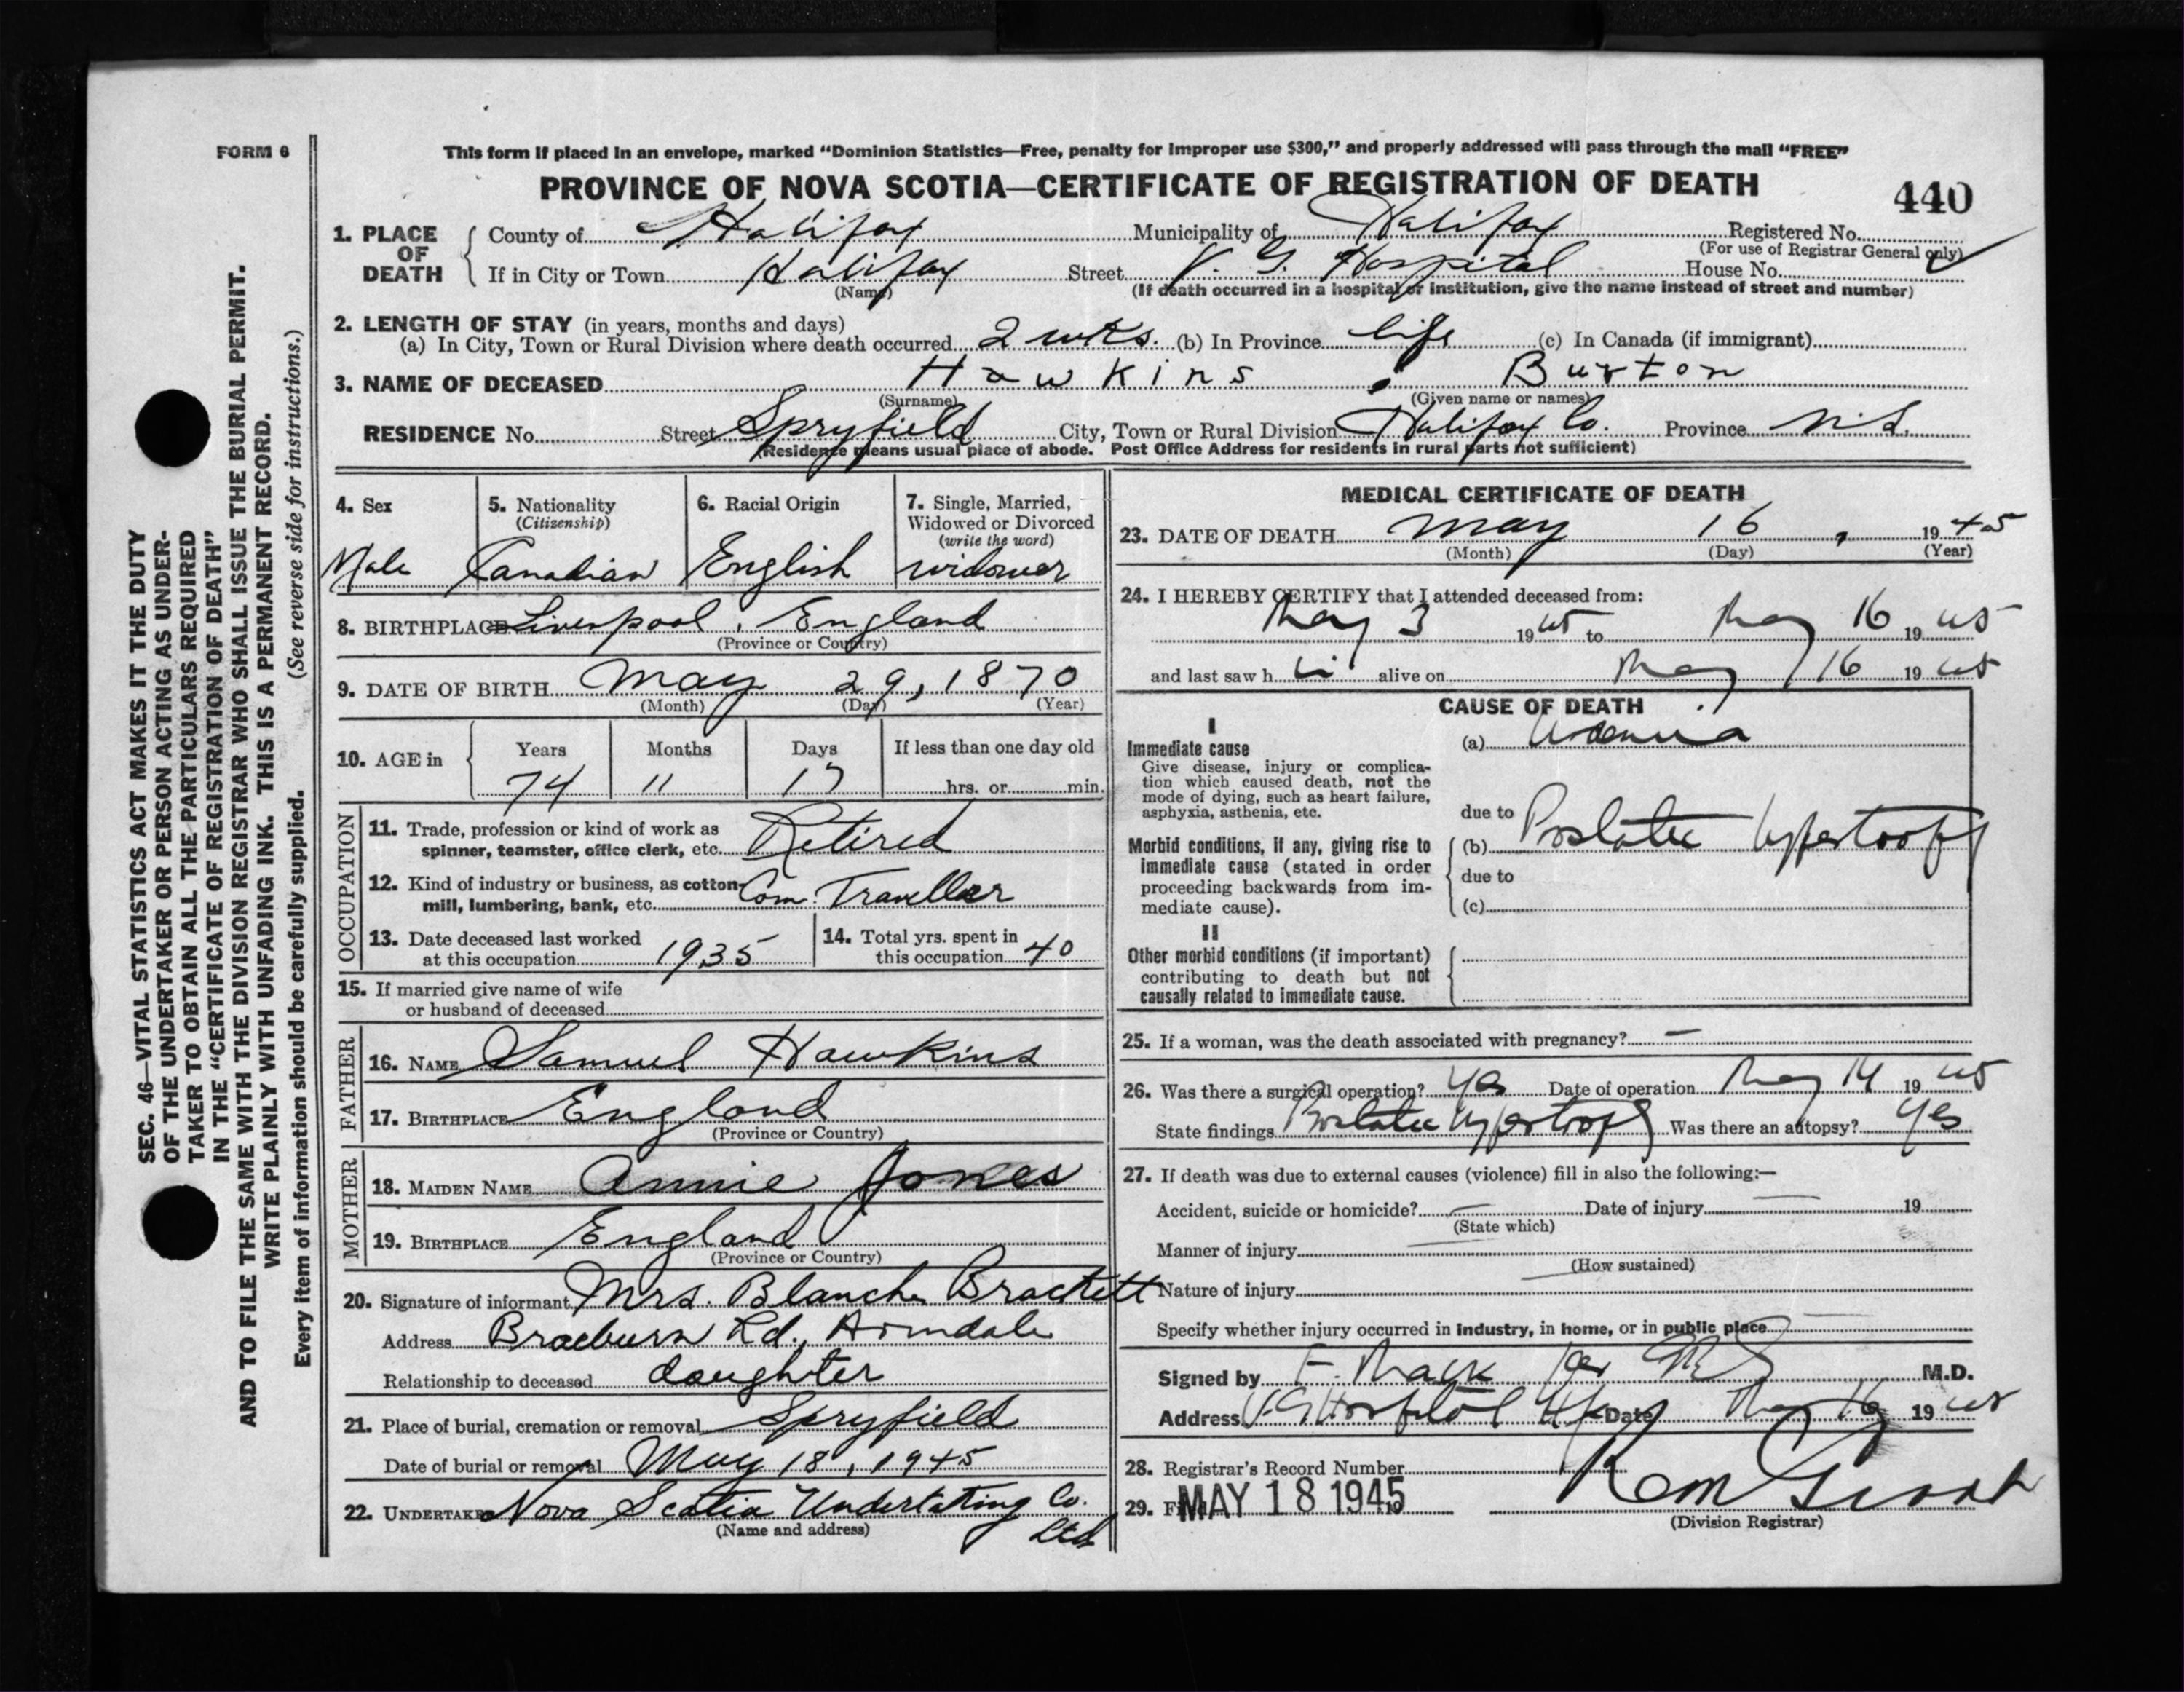 FORM 6
This form if placed in an envelope, marked "Dominion Statistics—Free, penalty for improper use $300," and properly addressed will pass through the mail "FREE"
PROVINCE OF NOVA SCOTIA—CERTIFICATE OF REGISTRATION OF DEATH
440
1. PLACE OF DEATH
County of Halifax Municipality of Halifax Registered No.
(For use of Registrar General only)
If in City or Town Halifax Street V. G. Hospital House No.
(Name) (If death occurred in a hospital or institution, give the name instead of street and number)
2. LENGTH OF STAY (in years, months and days)
(a) In City, Town or Rural Division where death occurred 2 wks. (b) In Province life (c) In Canada (if immigrant)
3. NAME OF DECEASED Hawkins, Burton
(Surname) (Given name or names)
RESIDENCE No. Street Spryfield City, Town or Rural Division Halifax Co. Province N.S.
(Residence means usual place of abode. Post Office Address for residents in rural parts not sufficient)
4. Sex
Male
5. Nationality
(Citizenship)
Canadian
6. Racial Origin
English
7. Single, Married,
Widowed or Divorced
(write the word)
widower
8. BIRTHPLACE Liverpool, England
(Province or Country)
9. DATE OF BIRTH May 29, 1870
(Month) (Day) (Year)
10. AGE in Years Months Days If less than one day old
74 11 17 hrs. or min.
OCCUPATION
11. Trade, profession or kind of work as
spinner, teamster, office clerk, etc. Retired
12. Kind of industry or business, as cotton
mill, lumbering, bank, etc. Com. Traveller
13. Date deceased last worked
at this occupation 1935
14. Total yrs. spent in
this occupation 40
15. If married give name of wife
or husband of deceased
FATHER
16. NAME Samuel Hawkins
17. BIRTHPLACE England
(Province or Country)
MOTHER
18. MAIDEN NAME Annie Jones
19. BIRTHPLACE England
(Province or Country)
20. Signature of informant Mrs. Blanche Brackett
Address Braeburn Rd., Armdale
Relationship to deceased daughter
21. Place of burial, cremation or removal Spryfield
Date of burial or removal May 18, 1945
22. UNDERTAKER Nova Scotia Undertaking Co. Ltd
(Name and address)
MEDICAL CERTIFICATE OF DEATH
23. DATE OF DEATH May 16, 1945
(Month) (Day) (Year)
24. I HEREBY CERTIFY that I attended deceased from:
May 3 1945 to May 16 1945
and last saw h alive on May 16 1945
CAUSE OF DEATH
I
Immediate cause
Give disease, injury or complica-
tion which caused death, not the
mode of dying, such as heart failure,
asphyxia, asthenia, etc.
(a) Uremia
due to
Morbid conditions, if any, giving rise to
immediate cause (stated in order
proceeding backwards from im-
mediate cause).
(b) Prostatic hypertrophy
due to
(c)
II
Other morbid conditions (if important)
contributing to death but not
causally related to immediate cause.
25. If a woman, was the death associated with pregnancy? —
26. Was there a surgical operation? Yes Date of operation May 14 1945
State findings Prostatic hypertrophy Was there an autopsy? Yes
27. If death was due to external causes (violence) fill in also the following:—
Accident, suicide or homicide? — Date of injury — 19
(State which)
Manner of injury
(How sustained)
Nature of injury
Specify whether injury occurred in industry, in home, or in public place
Signed by F. Mack M.D.
Address V.G. Hospital Hfx Date May 16 1945
28. Registrar's Record Number
29. Filed MAY 18 1945 19
(Division Registrar)
SEC. 46—VITAL STATISTICS ACT MAKES IT THE DUTY
OF THE UNDERTAKER OR PERSON ACTING AS UNDER-
TAKER TO OBTAIN ALL THE PARTICULARS REQUIRED
IN THE "CERTIFICATE OF REGISTRATION OF DEATH"
AND TO FILE THE SAME WITH THE DIVISION REGISTRAR WHO SHALL ISSUE THE BURIAL PERMIT.
WRITE PLAINLY WITH UNFADING INK. THIS IS A PERMANENT RECORD.
Every item of information should be carefully supplied. (See reverse side for instructions.)